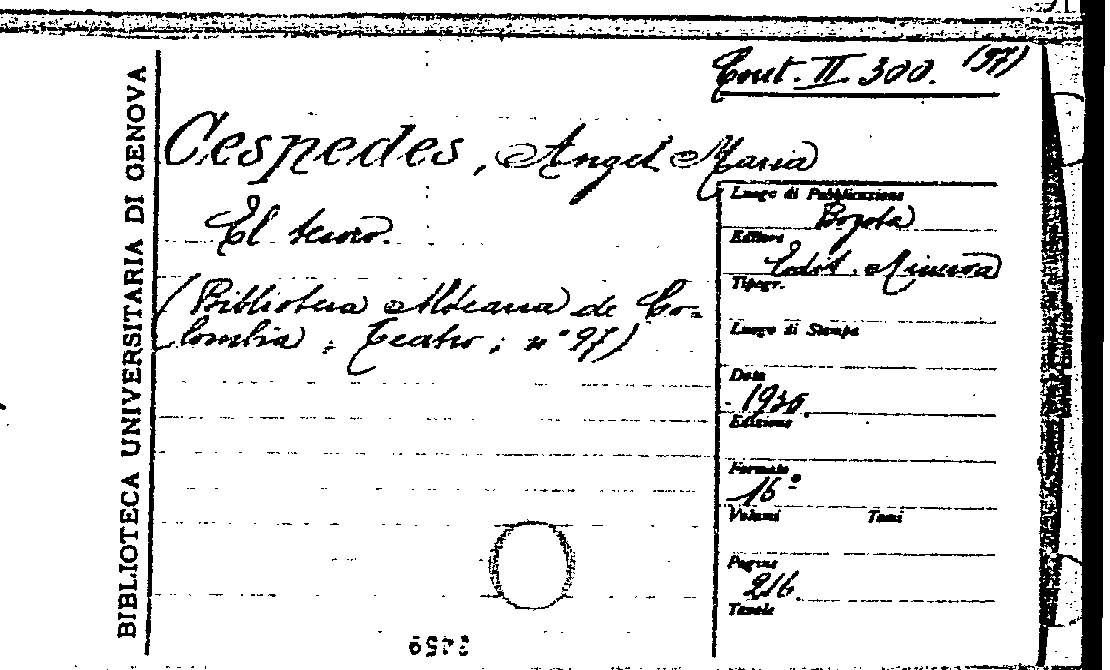 Cout. II. 300. (97)
BIBLIOTECA UNIVERSITARIA DI GENOVA
Cespedes, Angel Maria
El tesoro.
(Biblioteca Aldeana de Co=
lombia; Teatro; n° 97)
Luogo di Pubblicazione
Bogota
Editore
Edit. Minerva
Tipogr.
Luogo di Stampa
Data
1936.
Edizione
Formato
16°
Volumi Tomi
Pagine
216.
Tavole